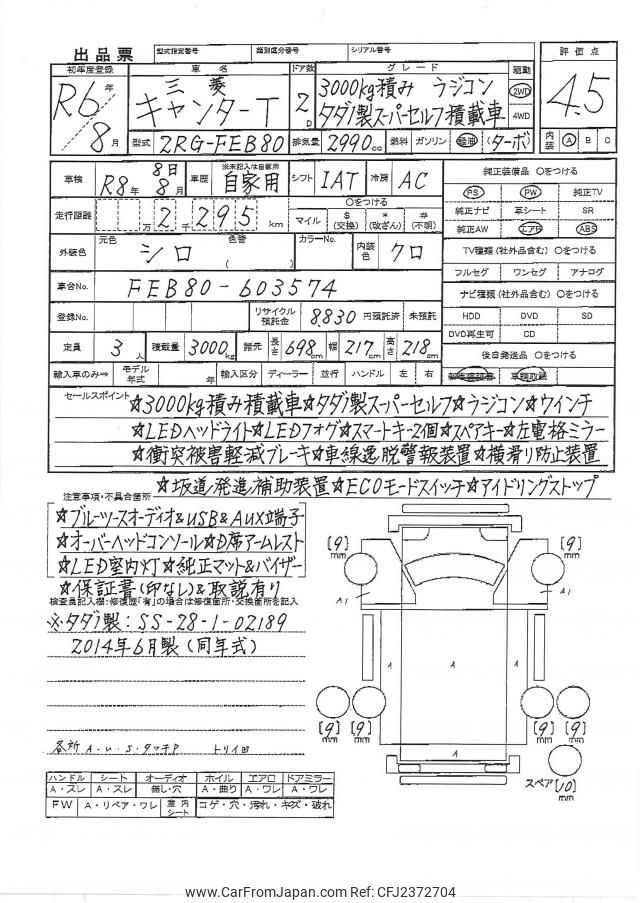 出品票 型式指定番号 類別区分番号 シリアル番号
評価点
4.5
初年度登録 車名 ドア数 グレード 駆動
R6年/8月 三菱 キャンターT 2D 3000kg積み ラジコン 2WD
タダノ製スーパーセルフ積載車 4WD
型式 2RG-FEB80 排気量 2990cc 燃料 ガソリン 軽油 (ターボ) 内装 A B C
車検 R8年8月8日 車歴 ※未記入は自家用 自家用 シフト IAT 冷房 AC
純正装備品 〇をつける
PS PW 純正TV
純正ナビ 革シート SR
純正AW エアB ABS
走行距離 万2千295km 〇をつける マイル $(交換) *(改ざん) #(不明)
外装色 元色 シロ 色替 ( ) カラーNo. 内装色 クロ
TV種類(社外品含む) 〇をつける
フルセグ ワンセグ アナログ
車台No. FEB80-603574
ナビ種類(社外品含む) 〇をつける
登録No. リサイクル預託金 8,830 円預託済 未預託
HDD DVD SD
DVD再生可 CD
定員 3人 積載量 3000kg 諸元 長さ 698cm 幅 217cm 高さ 218cm
後日発送品 〇をつける
輸入車のみ⇒ モデル年式 年 輸入区分 ディーラー 並行 ハンドル 左 右
セールスポイント
☆3000kg積み積載車☆タダノ製スーパーセルフ☆ラジコン☆ウインチ
☆LEDヘッドライト☆LEDフォグ☆スマートキー2個☆スペアキー☆左電格ミラー
☆衝突被害軽減ブレーキ☆車線逸脱警報装置☆横滑り防止装置
☆坂道発進補助装置☆ECOモードスイッチ☆アイドリングストップ
注意事項・不具合箇所
☆ブルーツースオーディオ&USB&AUX端子
☆オーバーヘッドコンソール☆D席アームレスト
☆LED室内灯☆純正マット&バイザー
☆保証書(印なし)&取説有り
検査員記入欄:修復歴「有」の場合は修復箇所・交換箇所を記入
※タダノ製:SS-28-1-02189
2014年6月製(同年式)
各所 A・U・S・タッチP
[9]mm [9]mm
A1 A1
A A A
A
[9]mm [9]mm [9]mm [9]mm
スペア[10]mm
ハンドル シート オーディオ ホイル エアロ ドアミラー
A・スレ A・スレ 無し・穴 A・曲り A・ワレ A・ワレ
FW A・リペア・ワレ 室内シート コゲ・穴・汚れ・キズ・破れ
www.CarFromJapan.com Ref: CFJ2372704